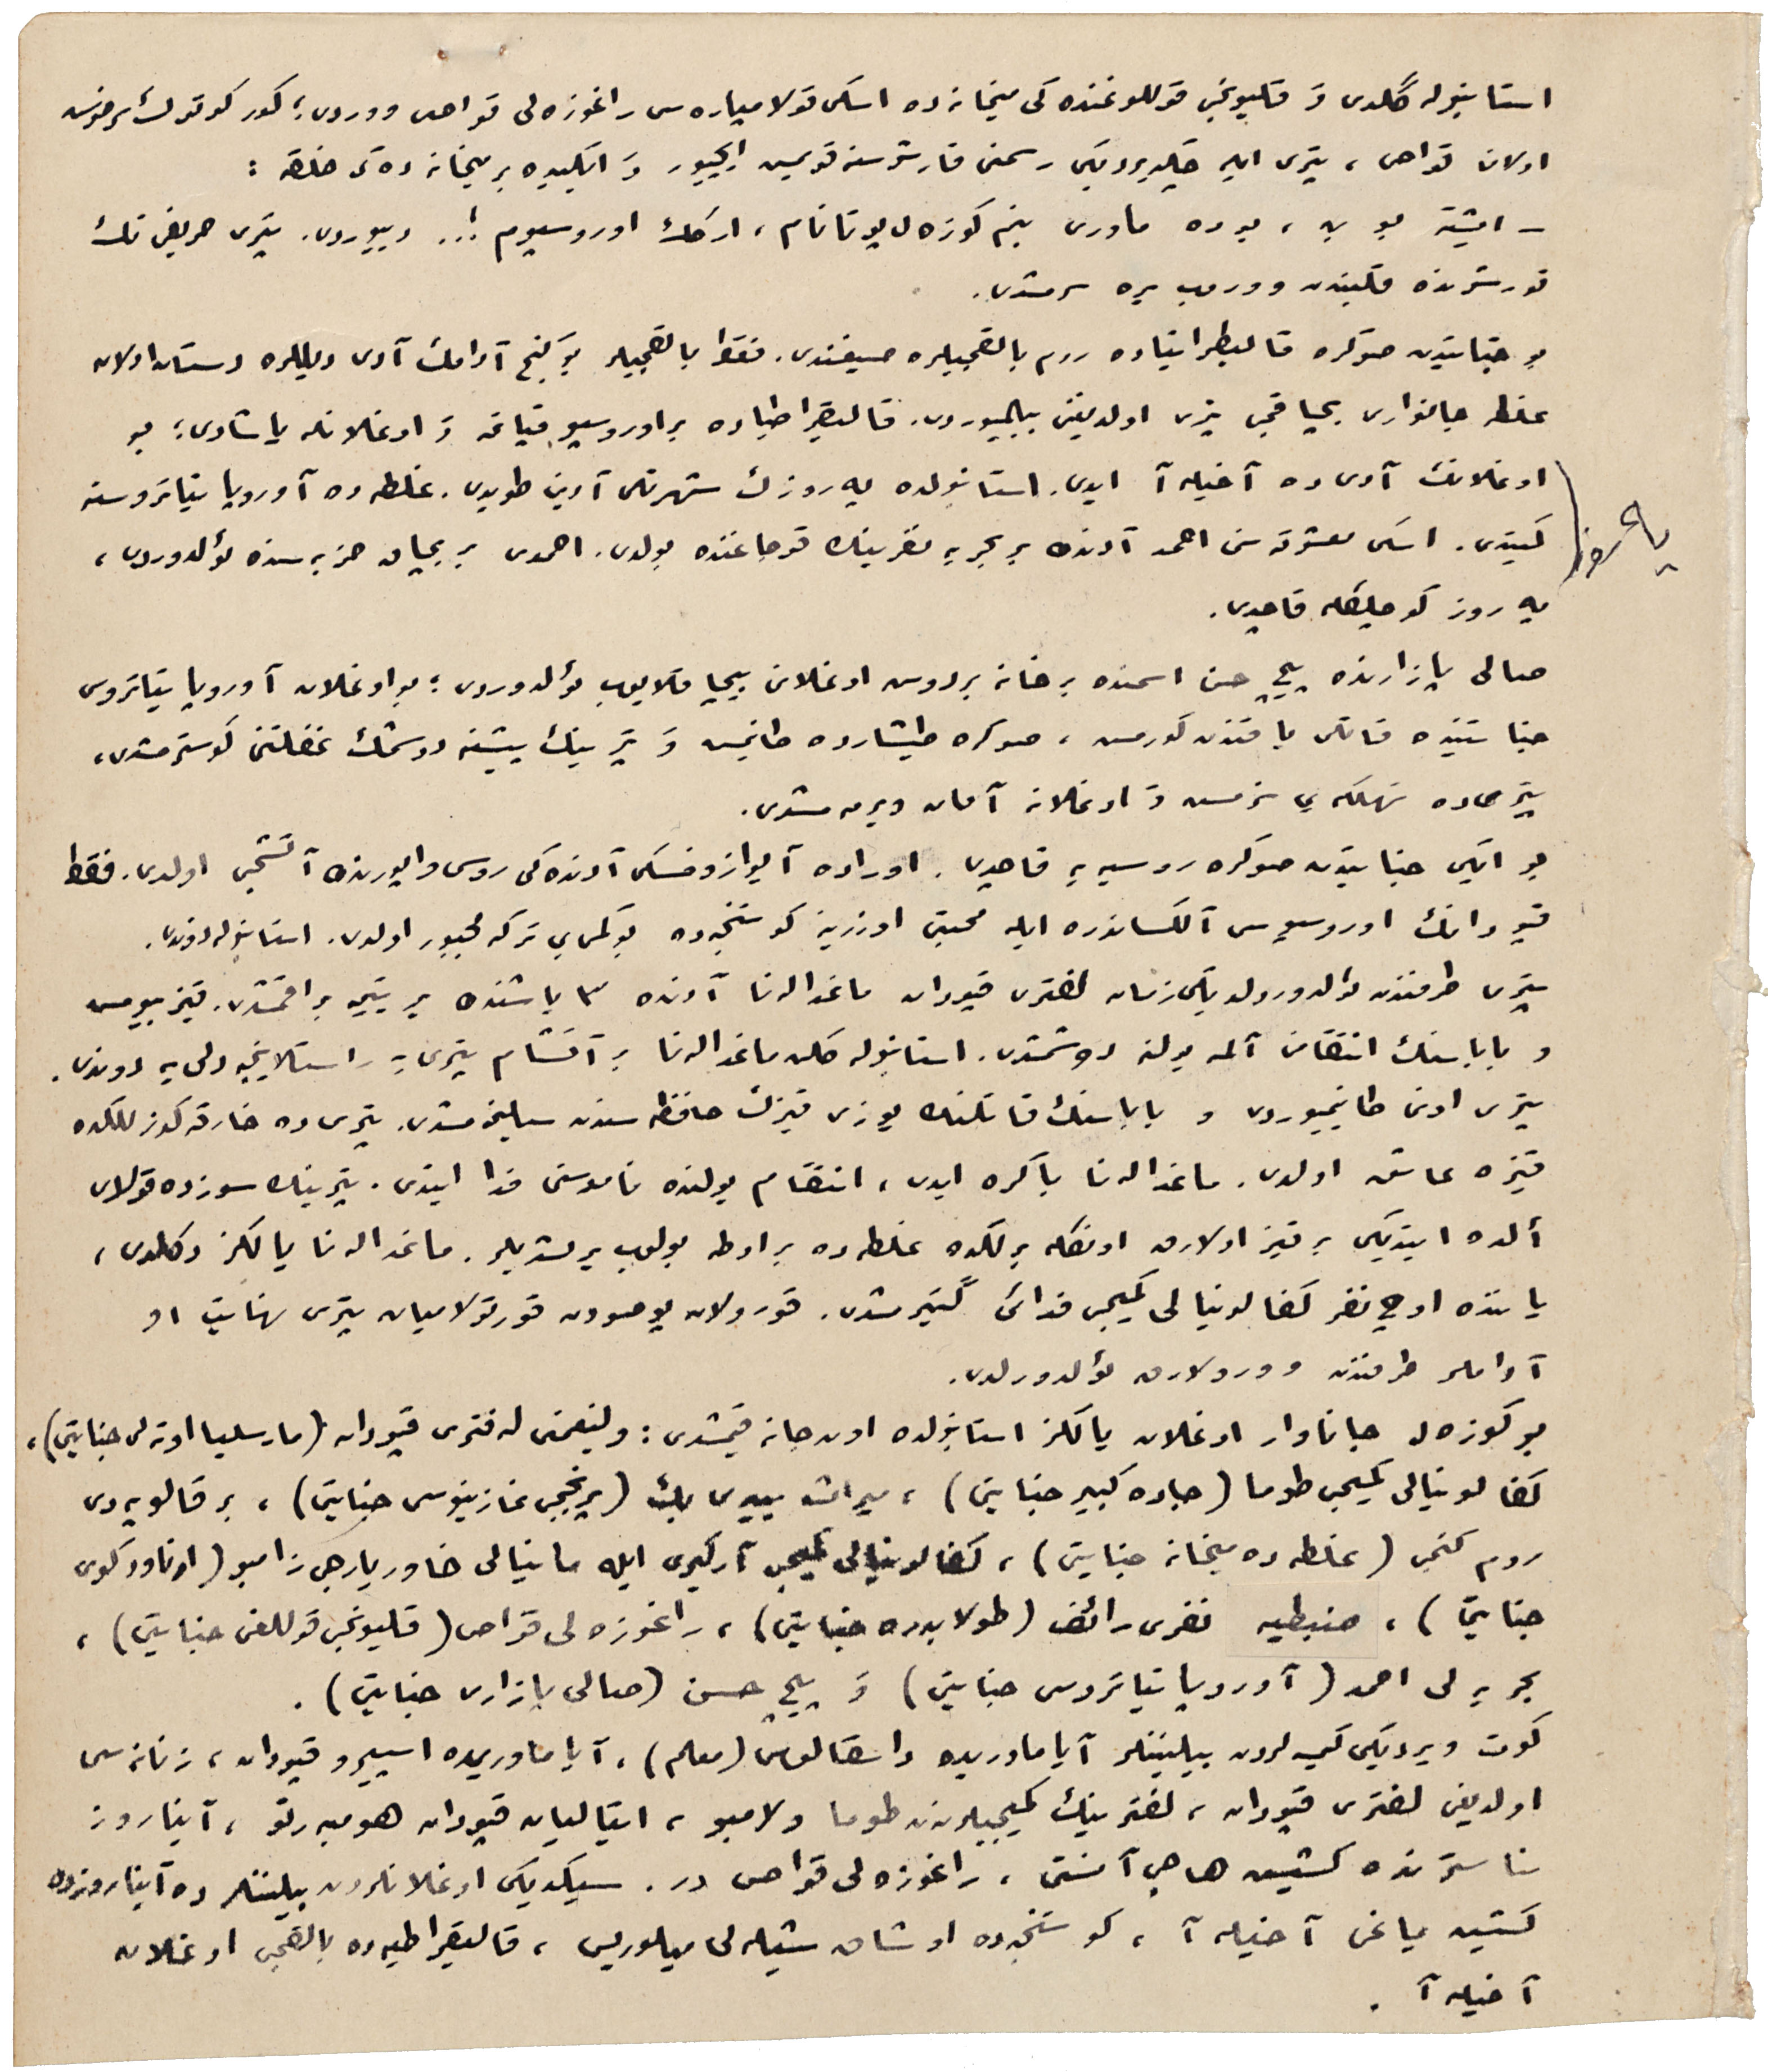 استانبوله گلدی وَ قلیونجی قوللوغنده کی میخانه ده اسکی قولامپاره سی راغوزه لی قواص ووردی؛ کور کوتوك سرخوش
اولان قواص، پتری ایله چكدیردیکی رسمنی قارشوسنه قویمش ایچیور وَ ایكیده بر میخانه ده کی خلقه :
ــ ایشته بو بن، بو ده ماوری بنم کوزه ل پوتانام، ارکك اوروسپوم !.. دییوردی. پتری حریفی تك
قورشونله قلبندن ووروب یره سرمشدی.
بو جنایتدن صوکره قالیقراتیاده روم بالقجیلره صیغندی. فقط بالقجیلر بو کنج آدامك آدی دیللره دستان اولان
غلطه جاناواری بیچاقجی پتری اولدیغنی بیلمیوردی. قالیقراطیاده بر اوروسپو قیافه وَ اوغلانله یاشادی؛ بو
اوغلانك آدی ده آخیله آ ایدی. استانبولده پیه روزك شهرتنی آدینی طویدی. غلطه ده آوروپا تیاتروسنه
کیتدی. اسکی معشوقه سنی احمد آدنده بر بحریه نفرینك قوجاغنده بولدی. احمدی بر بیچاق ضربه سنده ئولدوردی،
پیه روز کوجلكله قاچدی.
صالی پازارنده پیچ حسن اسمنده بر خانه بردوش اوغلانی بیچاقلایوب ئولدوردی ؛ بو اوغلان آوروپا تیاتروسی
جنایتنده قاتلی یاقیندن کورمش ، صوکره طیشارده طانیمش وَ پترینك پیشینه دوشمك غفلتنی کوسترمشدی،
پتری ده تهلكه یی سزمش وَ اوغلانه آمان ویرمه مشدی.
بو ایکی جنایتدن صوکره روسیه یه قاچدی. اوراده آیوازوفسکی آدنده کی روس واپورنده آتشجی اولدی. فقط
قپودانك اوروسپوسی آلكساندره ایله محبتی اوزرینه کوستنجه ده بو کمی یی ترکه مجبور اولدی. استانبوله دوندی.
پتری طرفندن ئولدورولدیکی زمان لفتری قپودان ماغدالهنا آدنده ٣ یاشنده بر یتیم براقمشدی. قیز بیومش
و باباسنك انتقامنی آلمه یولنه دوشمشدی. استانبوله کلن ماغدالهنا بر آقشام پتری یه راستلاینجه دلی یه دوندی.
پتری اونی طانیمیوردی و باباسنك قاتلنك یوزی قیزك حافظه سندن سیلینمه مشدی. پتری ده خارقه کوزللكده
قیزه عاشق اولدی. ماغدالهنا باکره ایدی، انتقام یولنده ناموسنی فدا ایتدی. پترینك سوزده قولای
ألده ایتدیکی بر قیز اولارق اونكله برلكده غلطه ده بر اوطه بولوب یرلشدیلر. ماغدالهنا یالكز دکلدی،
یاننده اوچ نفر کفالونیالی کمیجی فدائی کتیرمشدی. قورولان پوصودن قورتولامیان پتری نهایت او
آداملر طرفندن وورولارق ئولدورلدی.
بو کوزه ل جاناوار اوغلان یالكز استانبولده اون جانه قیمشدی : ولینعمتی له فتری قپودان (مارسلیا اوته لی جنایتی)،
کفالونیالی کمیجی طوما (جاده کبیر جنایتی)، میراث ییدی بك (برنجی غازینوسی جنایتی)، بر قالویه ردی
روم کنجی (غلطه ده میخانه جنایتی)، کفالونیالی کمیجی آرکیری ایله مانیالی خاوریارجی زامبو (ارناودکوی
جنایتی)، ضبطیه نفری رائف (طولابدره جنایتی)، راغوزه لی قواص (قلیونجی قوللغی جنایتی)،
بحریه لی احمد (آوروپا تیاتروسی جنایتی) وَ پیچ حسن (صالی پازاری جنایتی).
کوت ویردیکی کیمسه لردن بیلینینلر آیاماوریده داسقالوس (معلم)، آیا ماوریده اسپیرو قپودان، زنانه سی
اولدیغی لفتری قپودان، لفترینك کمیجیلرندن طوما ولامبو، ایتالیان قپودان هومبه رتو، آیناروز
مناسترنده کشیش هاجی آفنتی، راغوزه لی قواص در. سیكدیکی اوغلانلردن بیلینلر ده آیناروزده
کشیش یاماغی آخیله آ، کوستنجه ده اوشاق شیله لی میلوریس، قالیقراطیه ده بالقجی اوغلان
آخیله آ .